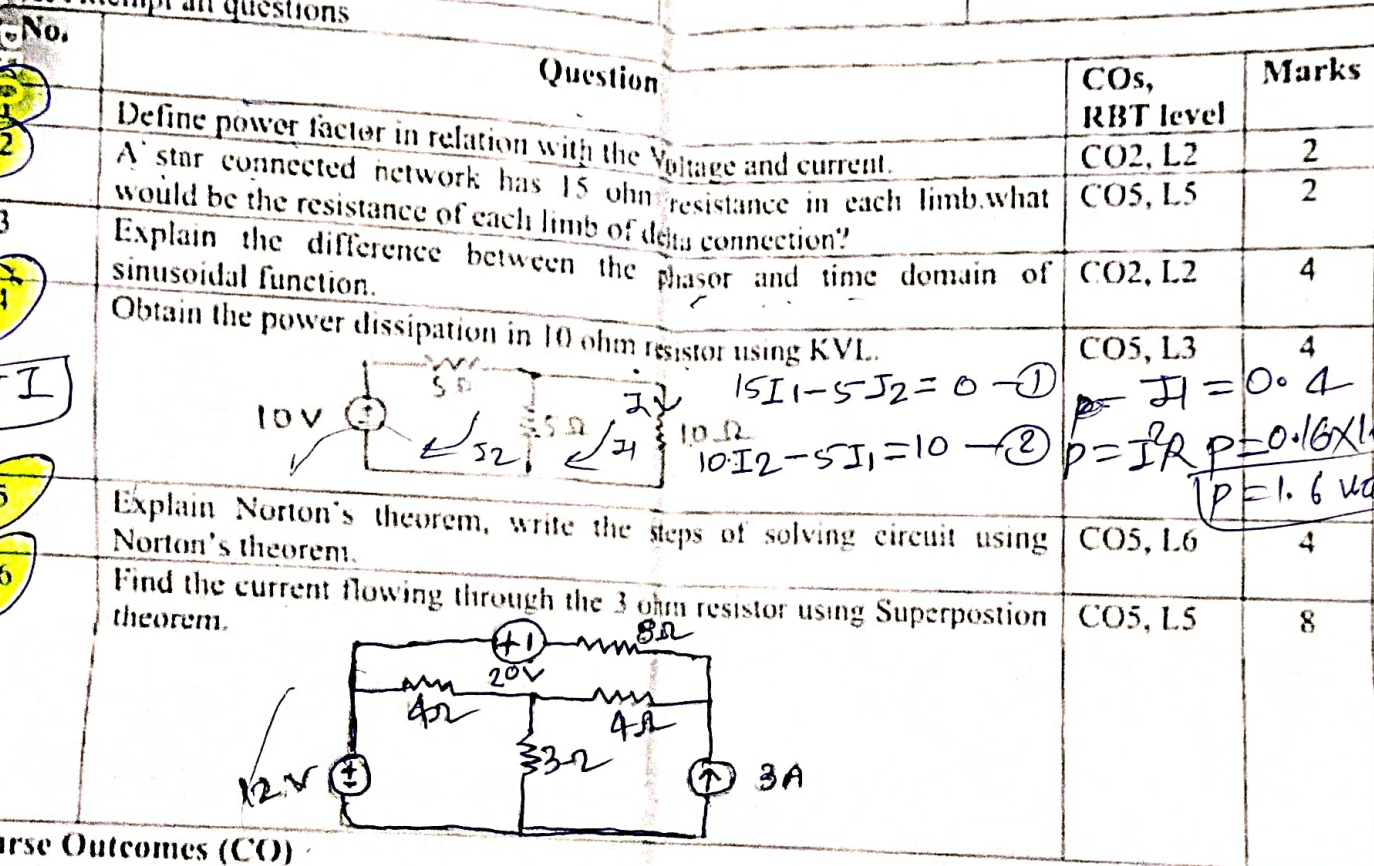 questions
No.
Question
COs,
RBT level
Marks
Define power factor in relation with the Voltage and current.
CO2, L2
2
2
A star connected network has 15 ohm resistance in each limb.what
would be the resistance of each limb of delta connection?
CO5, L5
2
3
Explain the difference between the phasor and time domain of
sinusoidal function.
CO2, L2
4
4
Obtain the power dissipation in 10 ohm resistor using KVL.
CO5, L3
4
I
10V
5Ω
5Ω
10Ω
I2
I1
15I1-5I2=0 —①
10I2-5I1=10 —②
I1=0.4
P=I²R P=0.16×1
P=1.6
5
Explain Norton's theorem, write the steps of solving circuit using
Norton's theorem.
CO5, L6
4
6
Find the current flowing through the 3 ohm resistor using Superpostion
theorem.
CO5, L5
8
8Ω
20V
4Ω
4Ω
3Ω
12V
3A
Outcomes (CO)